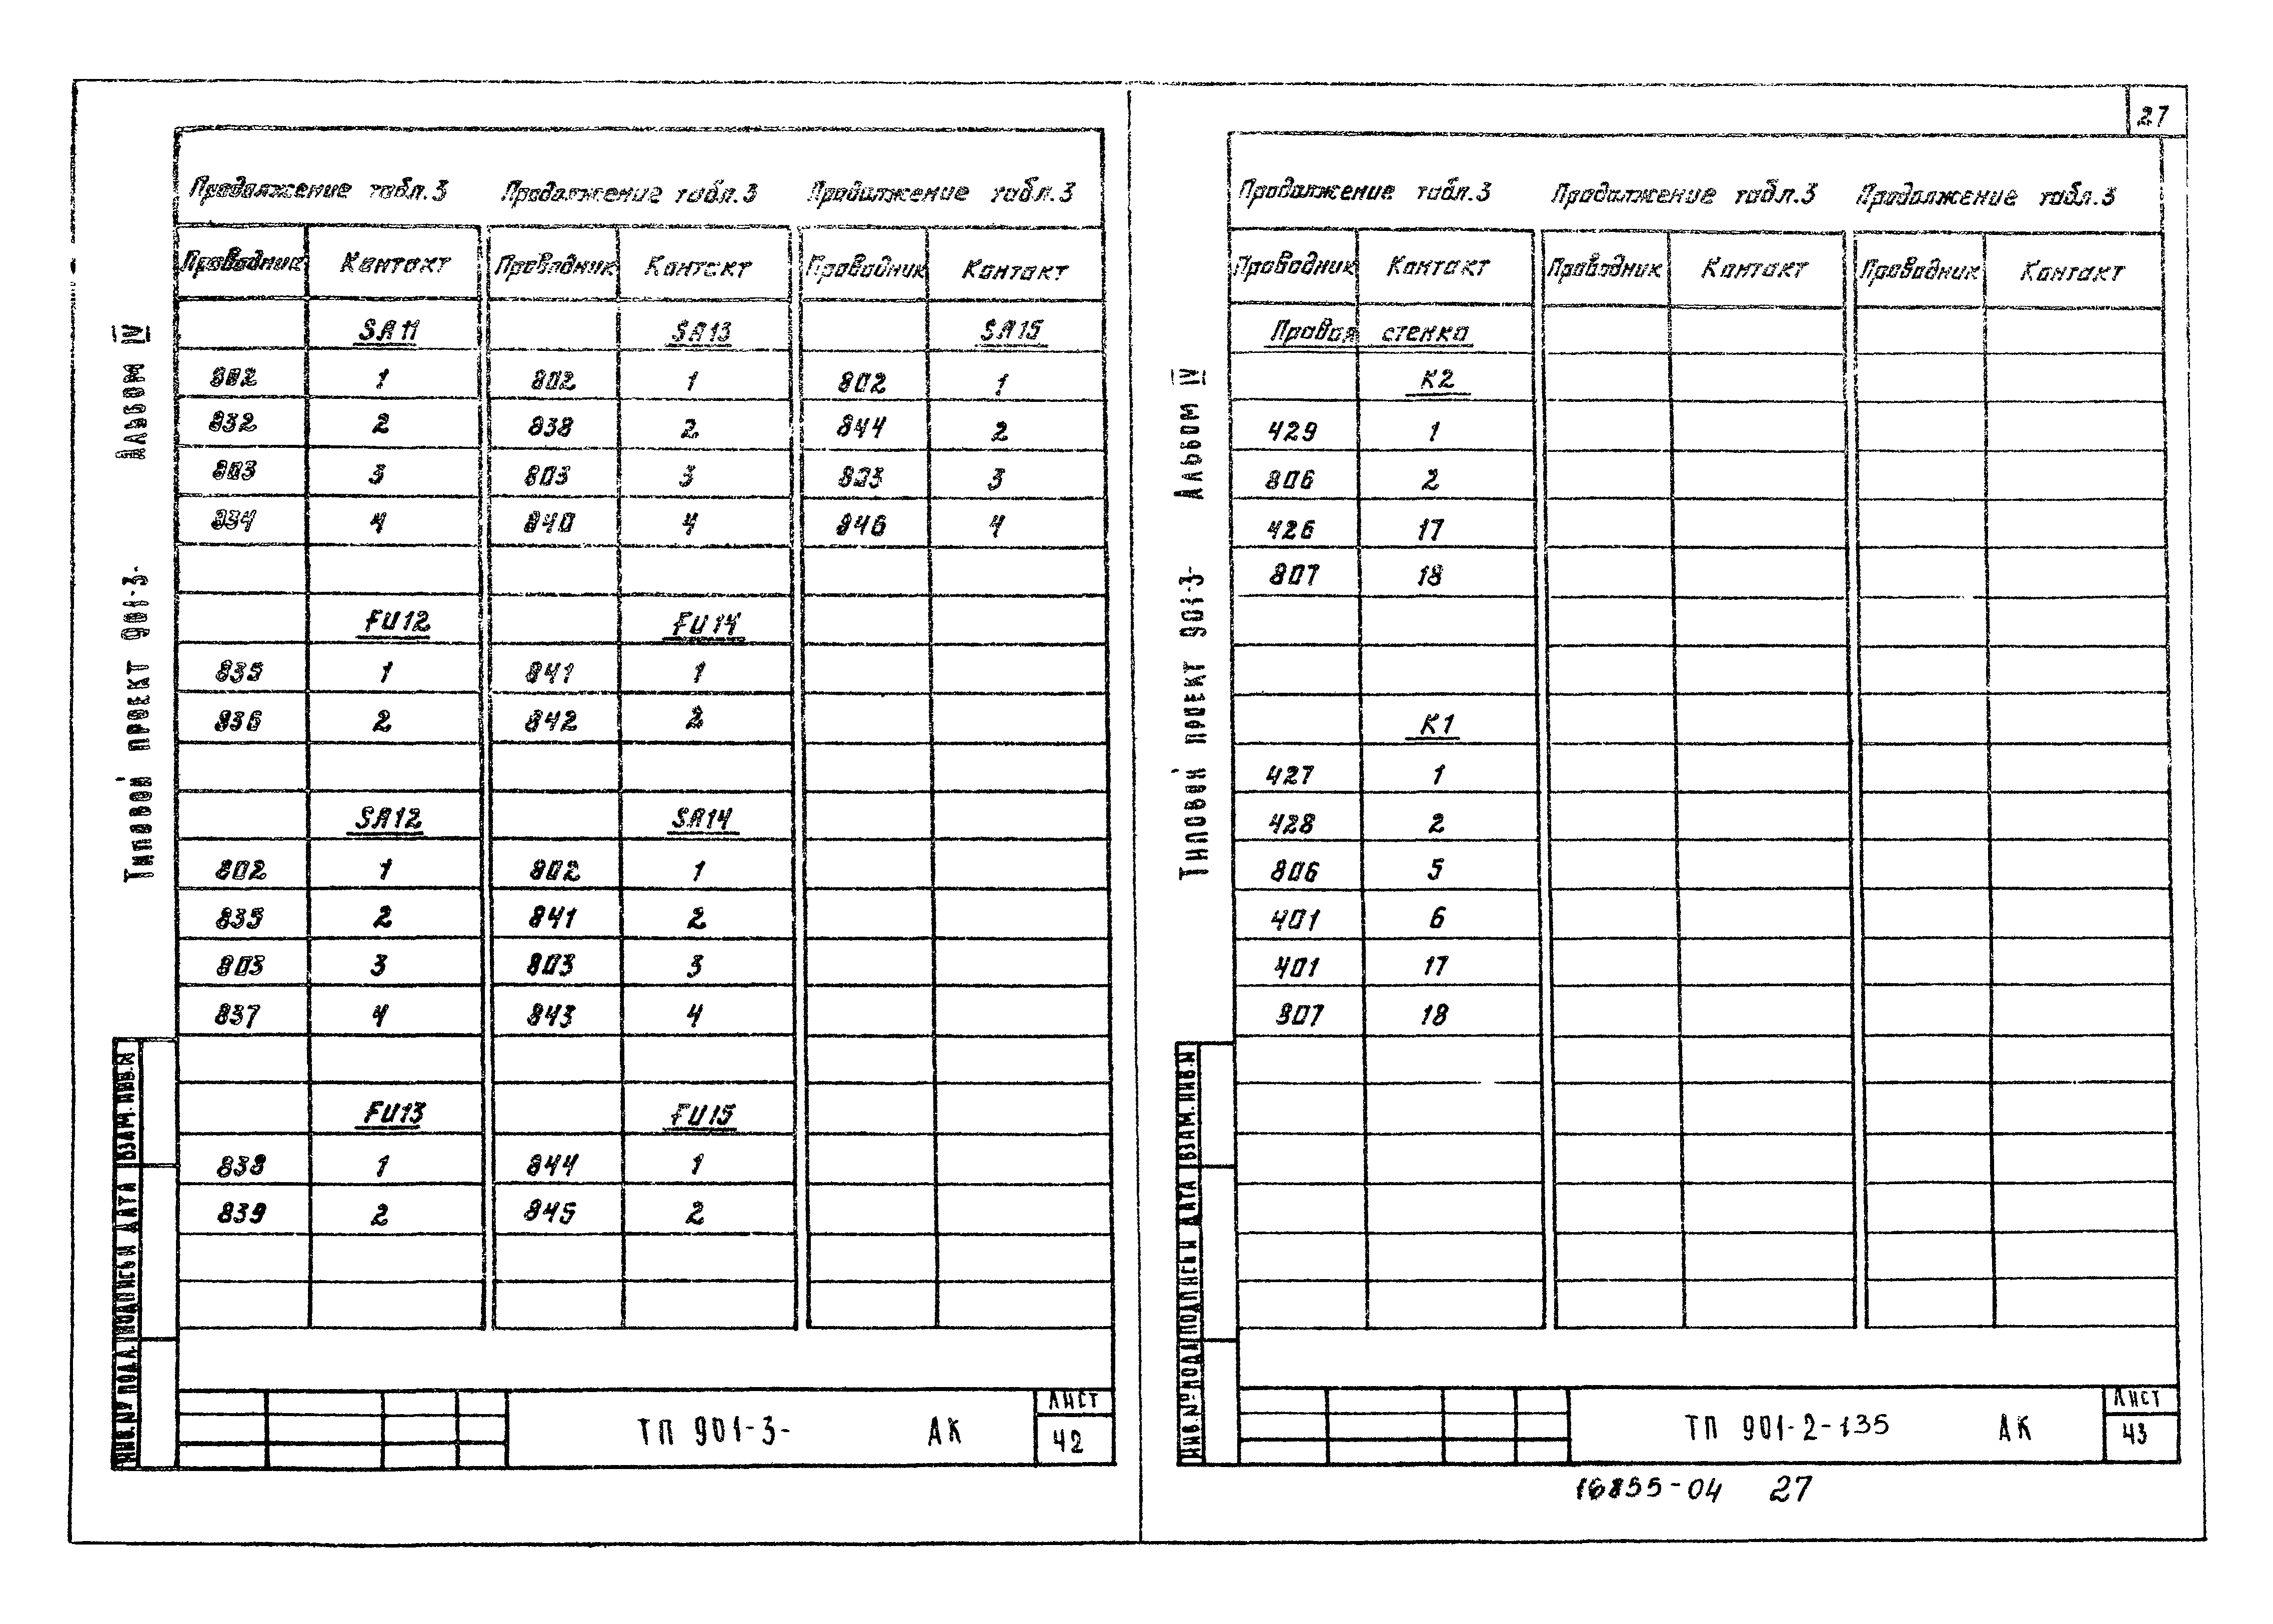 27
Типовой проект 901-3- Альбом IV
Продолжение табл.3 Продолжение табл.3 Продолжение табл.3
Проводник Контакт Проводник Контакт Проводник Контакт
SA11 SA13 SA15
802 1 802 1 802 1
832 2 838 2 844 2
803 3 803 3 803 3
834 4 840 4 846 4
FU12 FU14
835 1 841 1
836 2 842 2
SA12 SA14
802 1 802 1
835 2 841 2
803 3 803 3
837 4 843 4
FU13 FU15
838 1 844 1
839 2 845 2
Инв.№ подл. Подпись и дата Взам.инв.N
ТП 901-3- АК
Лист
42
Типовой проект 901-3- Альбом IV
Продолжение табл.3 Продолжение табл.3 Продолжение табл.3
Проводник Контакт Проводник Контакт Проводник Контакт
Правая стенка
K2
429 1
806 2
426 17
807 18
K1
427 1
428 2
806 5
401 6
401 17
807 18
Инв.№ подл Подпись и дата Взам.инв.N
ТП 901-2-135 АК
Лист
43
16855-04 27